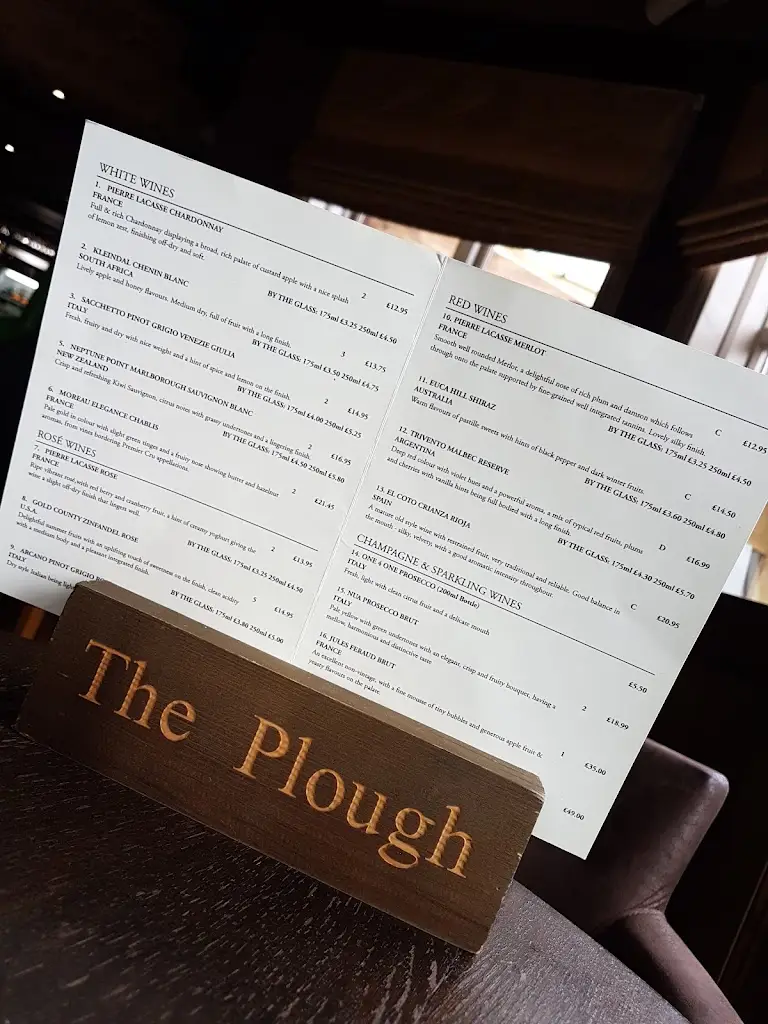 WHITE WINES
1. PIERRE LACASSE CHARDONNAY
FRANCE
Full & rich Chardonnay displaying a broad, rich palate of custard apple with a nice splash
of lemon zest, finishing off-dry and soft.
2 £12.95
BY THE GLASS: 175ml £3.25 250ml £4.50
2. KLEINDAL CHENIN BLANC
SOUTH AFRICA
Lively apple and honey flavours. Medium dry, full of fruit with a long finish.
3 £13.75
BY THE GLASS: 175ml £3.50 250ml £4.75
3. SACCHETTO PINOT GRIGIO VENEZIE GIULIA
ITALY
Fresh, fruity and dry with nice weight and a hint of spice and lemon on the finish.
2 £14.95
BY THE GLASS: 175ml £4.00 250ml £5.25
5. NEPTUNE POINT MARLBOROUGH SAUVIGNON BLANC
NEW ZEALAND
Crisp and refreshing Kiwi Sauvignon, citrus notes with grassy undertones and a lingering finish.
2 £16.95
BY THE GLASS: 175ml £4.50 250ml £5.80
6. MOREAU ELEGANCE CHABLIS
FRANCE
Pale gold in colour with slight green tinges and a fruity nose showing butter and hazelnut
aromas, from vines bordering Premier Cru appellations.
2 £21.45
ROSÉ WINES
7. PIERRE LACASSE ROSE
FRANCE
Ripe vibrant rose, with red berry and cranberry fruit, a hint of creamy yoghurt giving the
wine a slight off-dry finish that lingers well.
2 £13.95
BY THE GLASS: 175ml £3.25 250ml £4.50
8. GOLD COUNTY ZINFANDEL ROSE
U.S.A.
Delightful summer fruits with an uplifting touch of sweetness on the finish, clean acidity
with a medium body and a pleasant integrated finish.
5 £14.95
BY THE GLASS: 175ml £3.80 250ml £5.00
9. ARCANO PINOT GRIGIO
ITALY
Dry style Italian being
RED WINES
10. PIERRE LACASSE MERLOT
FRANCE
Smooth well rounded Merlot, a delightful nose of rich plum and damson which follows
through onto the palate supported by fine-grained well integrated tannins. Lovely silky finish.
C £12.95
BY THE GLASS: 175ml £3.25 250ml £4.50
11. EUCA HILL SHIRAZ
AUSTRALIA
Warm flavours of pastille sweets with hints of black pepper and dark winter fruits.
C £14.50
BY THE GLASS: 175ml £3.60 250ml £4.80
12. TRIVENTO MALBEC RESERVE
ARGENTINA
Deep red colour with violet hues and a powerful aroma, a mix of typical red fruits, plums
and cherries with vanilla hints being full bodied with a long finish.
D £16.99
BY THE GLASS: 175ml £4.30 250ml £5.70
13. EL COTO CRIANZA RIOJA
SPAIN
A mature old style wine with restrained fruit, very traditional and reliable. Good balance in
the mouth - silky, velvety, with a good aromatic intensity throughout.
C £20.95
CHAMPAGNE & SPARKLING WINES
14. ONE 4 ONE PROSECCO (200ml Bottle)
ITALY
Fresh, light with clean citrus fruit and a delicate mouth
£5.50
15. NUA PROSECCO BRUT
ITALY
Pale yellow with green undertones with an elegant, crisp and fruity bouquet, having a
mellow, harmonious and distinctive taste
2 £18.99
16. JULES FERAUD BRUT
FRANCE
An excellent non-vintage, with a fine mousse of tiny bubbles and generous apple fruit &
yeasty flavours on the palate.
1 £35.00
£49.00
The Plough